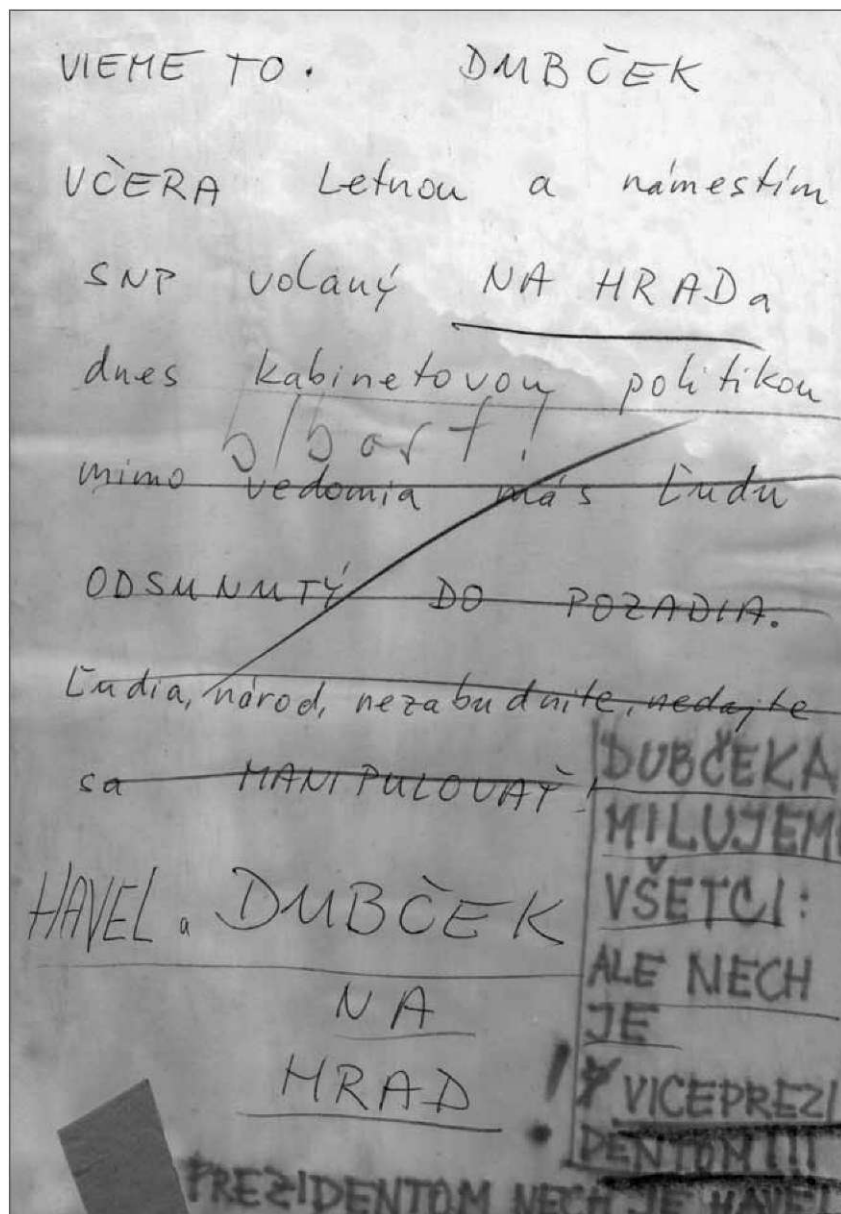 VIEME TO. DUBČEK
VČERA Letnou a námestím
SNP volaný NA HRAD a
dnes kabinetovou politikou
blbosť!
mimo vedomia más Ľudu
ODSUNUTÝ DO POZADIA.
Ľudia, národ, nezabudnite, nedajte
sa MANIPULOVAŤ!
HAVEL a DUBČEK
NA
HRAD!
DUBČEKA
MILUJEME
VŠETCI:
ALE NECH
JE
VICEPREZI
DENTOM!!!
PREZIDENTOM NECH JE HAVEL